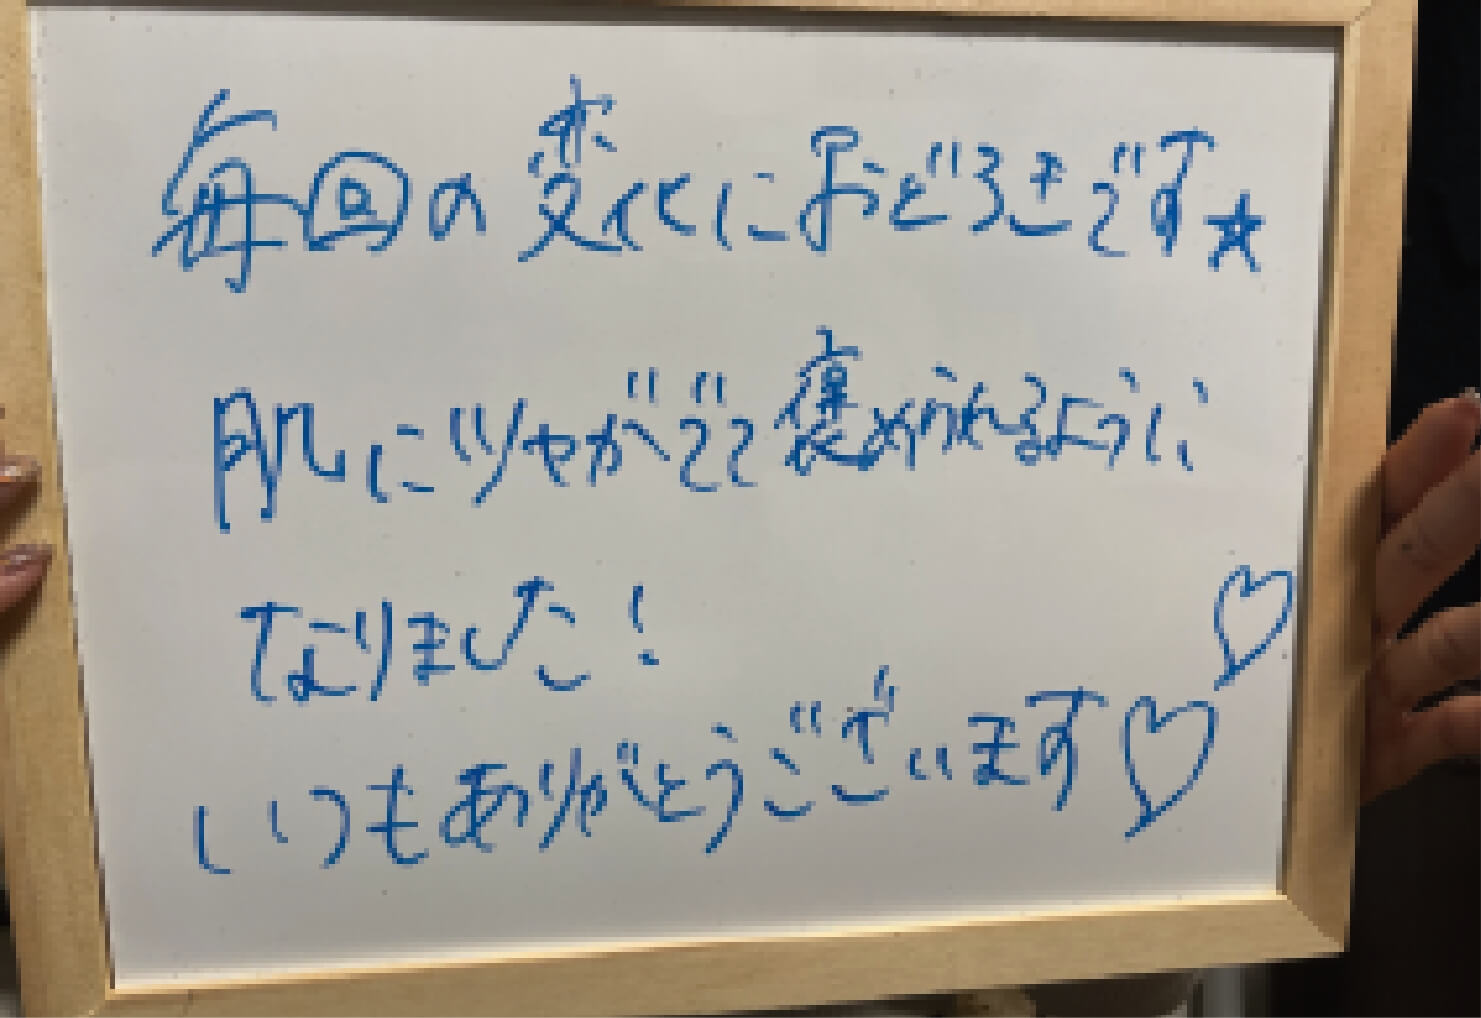 毎回の変化におどろきです★
肌にツヤがでて褒められるように
なりました！♡
いつもありがとうございます♡